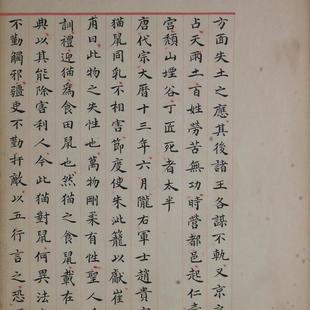 方面失土之應其後諸王各謀不軌又京
占天雨土百姓勞苦無功時營都邑起仁壽
宮頹山堙谷丁匠死者太半
唐代宗大曆十三年六月隴右軍士趙貴家
猫鼠同乳不相害節度使朱泚籠以獻崔
甫曰此物之失性也萬物剛柔有性聖人
訓禮迎猫為食田鼠也然猫之食鼠載在
典以其能除害利人今此猫對鼠何異法
不勤觸邪疆吏不勤扞敵以五行言之恐